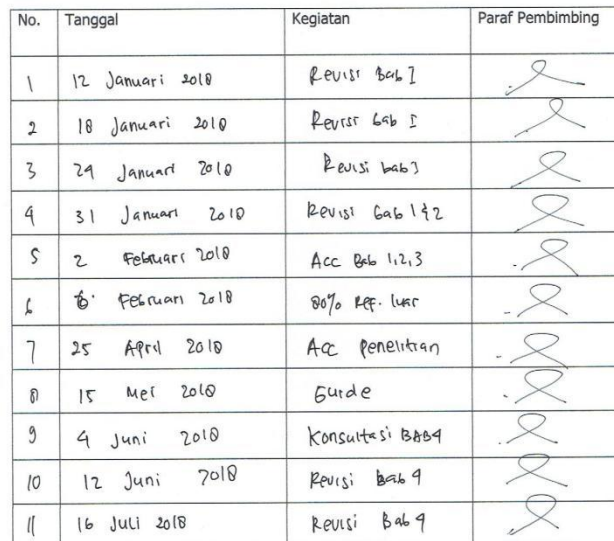 No. Tanggal Kegiatan Paraf Pembimbing
1 12 Januari 2018 Revisi Bab I
2 18 Januari 2018 Revisi bab I
3 24 Januari 2018 Revisi bab 3
4 31 Januari 2018 Revisi bab 1 & 2
5 2 Februari 2018 Acc Bab 1,2,3
6 6 Februari 2018 80% Ref. luar
7 25 April 2018 Acc penelitian
8 15 Mei 2018 Guide
9 4 Juni 2018 Konsultasi BAB 4
10 12 Juni 2018 Revisi Bab 4
11 16 Juli 2018 Revisi Bab 4